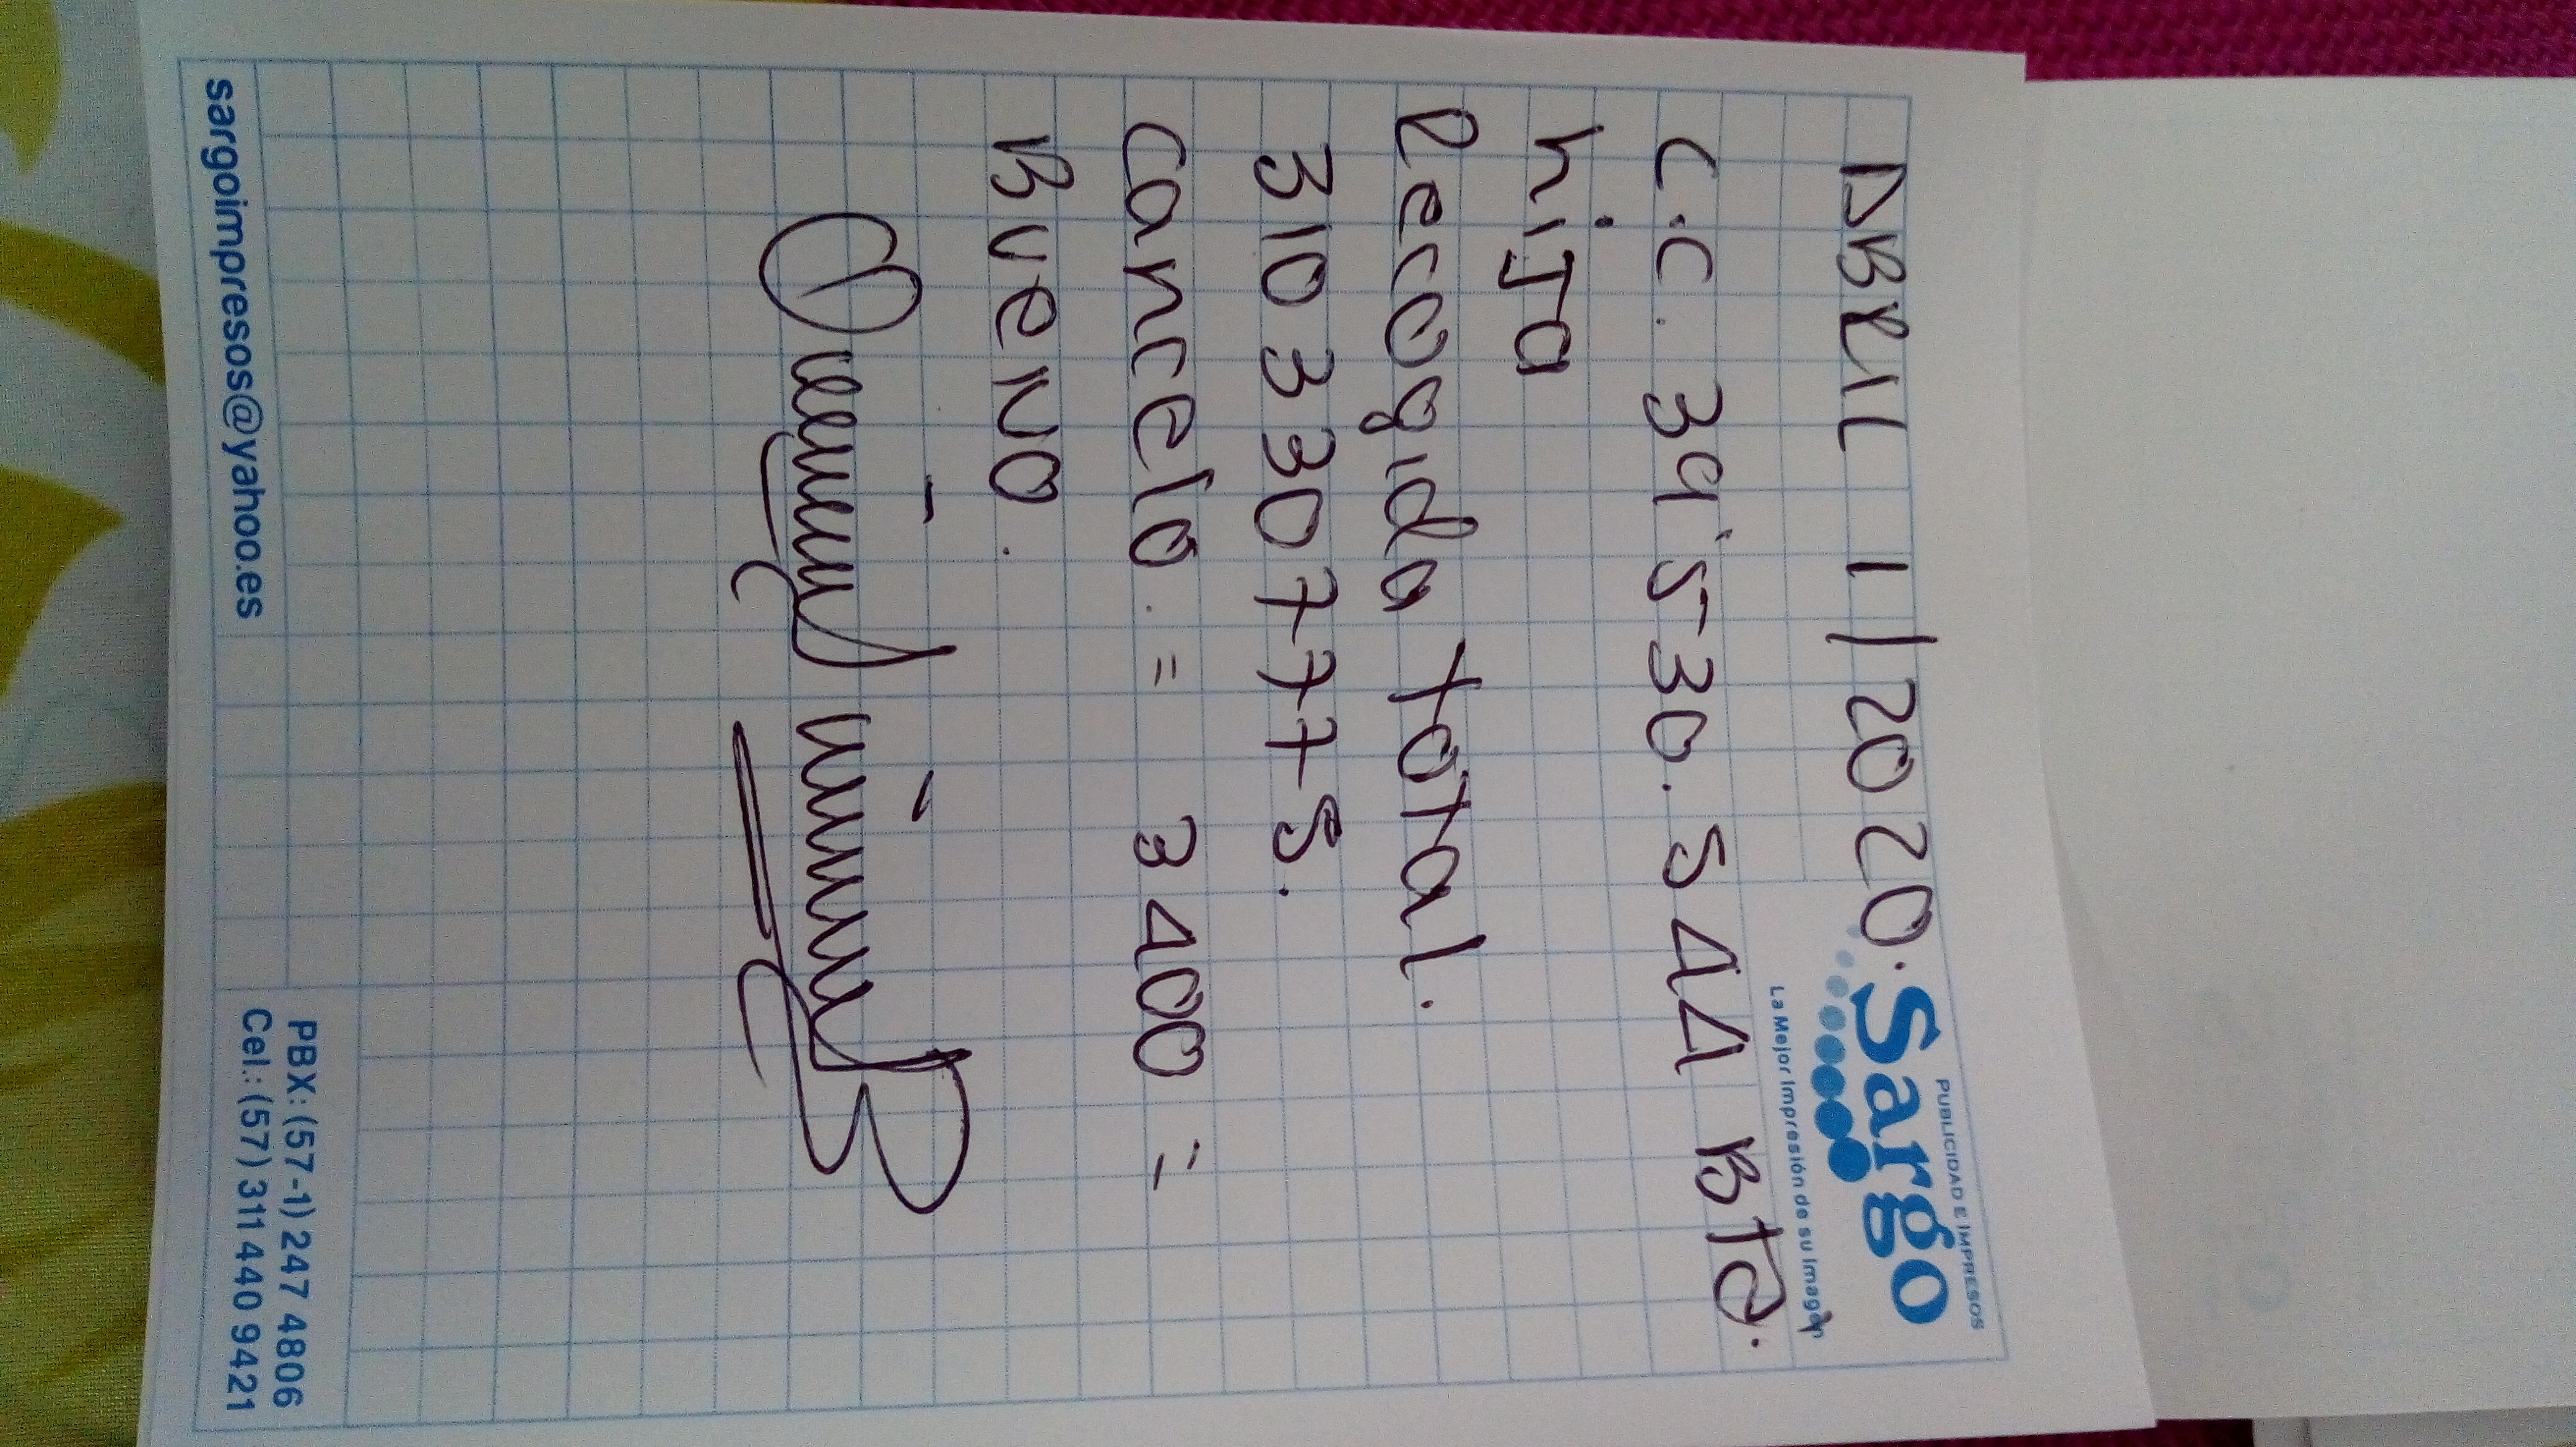 PUBLICIDAD E IMPRESOS
Sargo
La Mejor Impresión de su Imagen
ABRIL 1/2020.
C.C. 39'530.544 BTA.
hiJa
Recogida Total.
310 330 7775.
Cancelo. = 3400 =
BUENO.
sargoimpresos@yahoo.es
PBX: (57-1) 247 4806
Cel.: (57) 311 440 9421